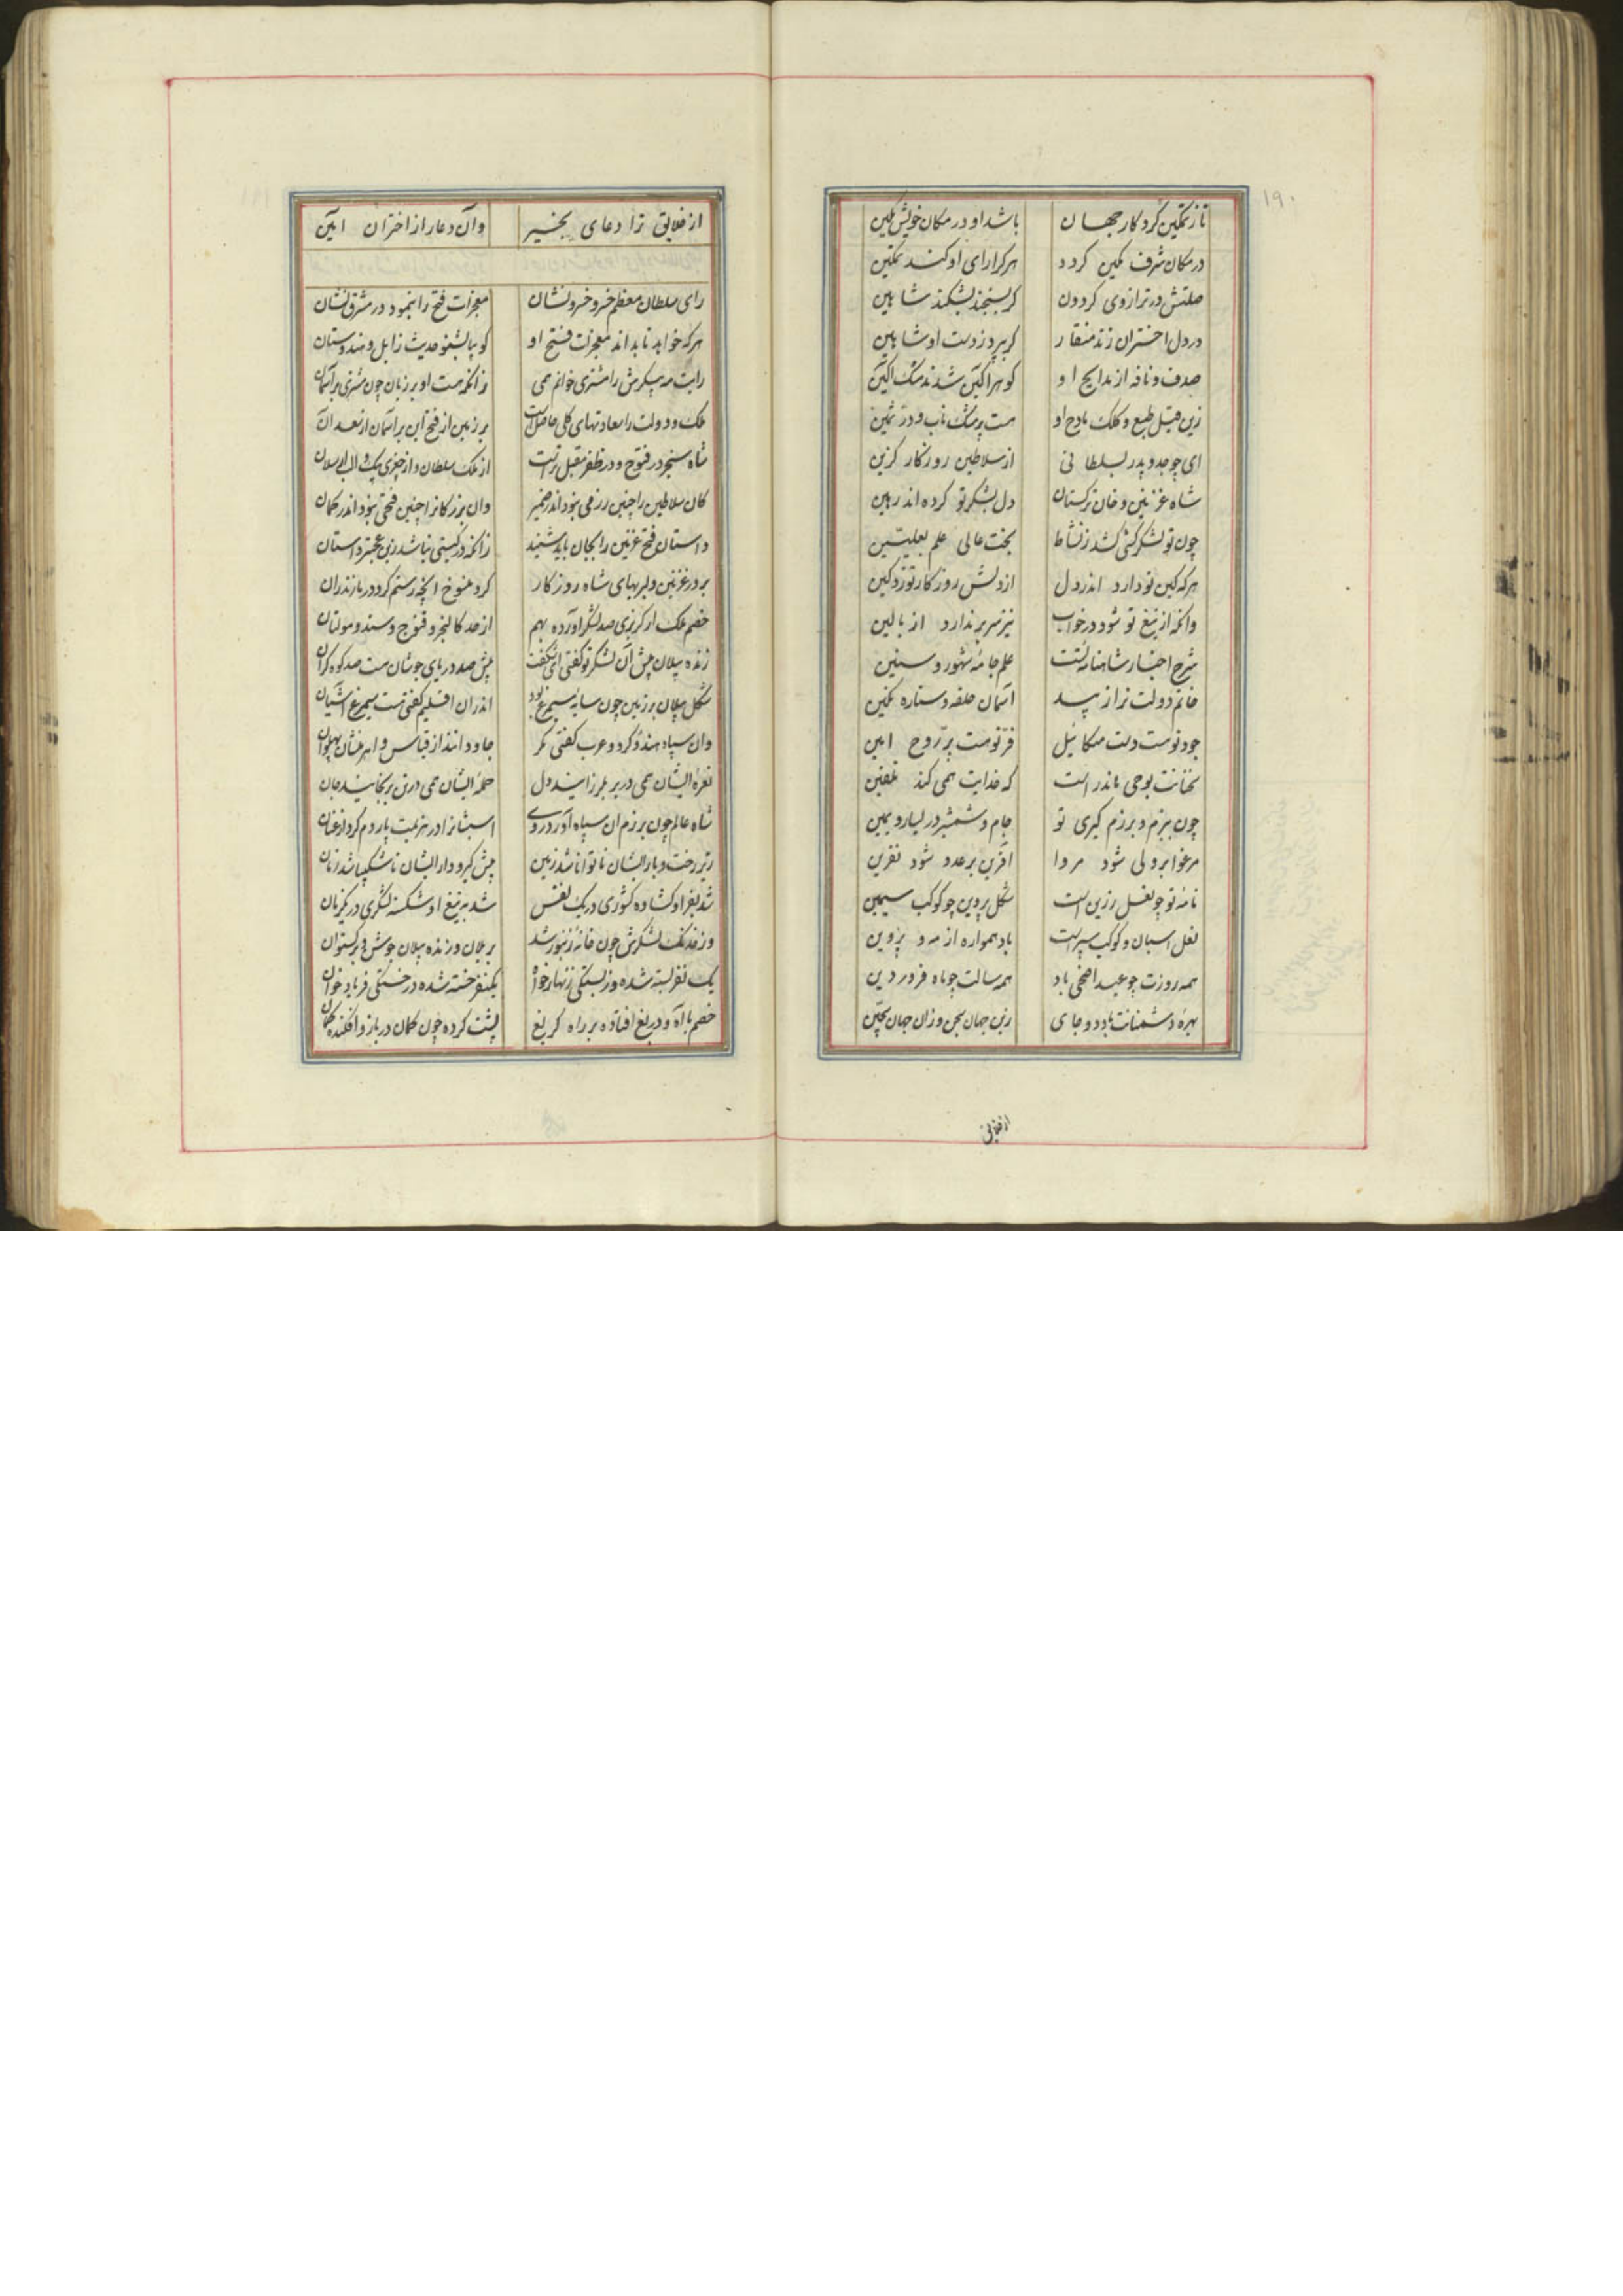 ۱۹۰
تا ز تمکین کردکار جهان باشد او در مکان خویش مکین
در مکان شرف مکین کردد هر کرا رای او کند تمکین
صلتش در ترازوی کردون کر بسنجند بشکند شاهین
در دل اختران زند منقار کر بپرد ز دست او شاهین
صدف و نافه از مدایح او کوهر اکین شدند مشک اکین
زین قبل طبع و کلک مادح او هست پر مشک ناب و در ثمین
ای چو جد و پدر بسلطانی از سلاطین روزکار کزین
شاه غزنین و خان ترکستان دل بشکر تو کرده اند رهین
چون تو لشکر کشی کشد ز نشاط بخت عالی علم بعلیین
هر که کین تو دارد اندر دل از دلش روزکار توزد کین
وانکه از تیغ تو شود در خواب نیز سر بر ندارد از بالین
شرح اخبار شاهنامه تست علم جامه شهور و سنین
خاتم دولت ترا زیبد آسمان حلقه و ستاره نکین
جود تو هست دست میکائیل فر تو هست پر روح امین
سخنانت بوحی ماند راست که خدایت همی کند تلقین
چون ببزم و برزم کیری تو جام و شمشیر در یسار و یمین
مرغوا بر ولی شود مروا آفرین بر عدو شود نفرین
نامه تو چو نعل زرین است شکل پروین چو کوکب سیمین
نعل اسبان و کوکب سپرت باد همواره از مه و پروین
همه روزت چو عید اضحی باد همه سالت چو ماه فروردین
بهره دشمنانت باد دو جای زین جهان سجن و زان جهان سجین
از خلایق
از خلایق ترا دعای بخیر وان دعا را از اختران امین
رای سلطان معظم خسرو خسرو نشان معجزات فتح را بنمود در مشرق نشان
هر که خواهد تا بداند معجزات فتح او کو بیا بشنو حدیث زابل و هندوستان
رایت مه پیکرش را مشتری خوانم همی زانکه هست او بر زبان چون مشتری بر آسمان
ملک و دولت را سعادتهای کلی حاصل است بر زمین از فتح این بر آسمان از سعد آن
شاه سنجر در فتوح و در ظفر مقبل تر است از ملک سلطان و از چغری بک و الب ارسلان
کان سلاطین را چنین رزمی نبود اندر ضمیر وان بزرکانرا چنین فتحی نبود اندر کمان
داستان فتح غزنین را بجان باید شنید زانکه در کیتی نباشد زین عجبتر داستان
بر در غزنین دلیریهای شاه روزکار کرد منسوخ انچه رستم کرد در مازندران
خصم ملک ار کربزی صد لشکر آورده بهم از حد کالنجر و قنوج و سند و مولتان
زنده پیلان پیش آن لشکر تو کفتی ای شکفت پیش صد دریای جوشان هست صد کوه کران
شکل پیلان بر زمین چون سایه سیمرغ بود اندران اقلیم کفتی هست سیمرغ آشیان
وان سپاه هندو و کرد و عرب کفتی مکر جاودانند از قیاس و اهرمنشان پهلوان
نعره ایشان همی در بر بلرزانید دل حمله ایشان همی در تن برنجانید جان
شاه عالم چون برزم ان سپاه آورد روی اسبشانرا در هزیمت پاردم کرد از عنان
زیر رخت و بار ایشان ناتوانا شد زمین پیش کیر و دار ایشان ناشکیبا شد زمان
شد بفر او کشاده کشوری در یک نفس شد بتیغ او شکسته لشکری در یکزمان
وز خدنک لشکرش چون خانه زنبور شد بر یلان و زنده پیلان جوشن و برکستوان
یک نفر بسته شده وز بستکی زنهار خواه یکنفر خسته شده در خستکی فریاد خوان
خصم با آه و دریغ افتاده بر راه کریغ پشت کرده چون کمان در بازو افکنده کمان